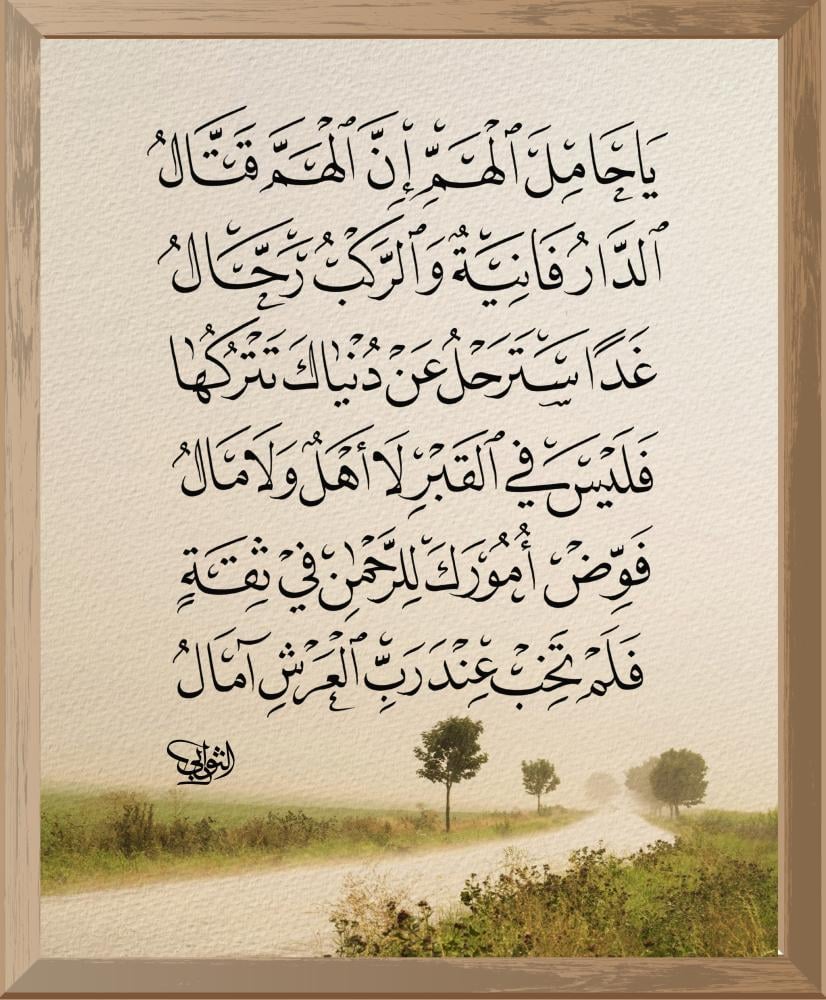 يَاحَامِلَ ٱلْهَمِّ إِنَّ ٱلْهَمَّ قَتَّالُ
ٱلدَّارُ فَانِيَةٌ وَٱلرَّكْبُ رَحَّالُ
غَدًا سَتَرْحَلُ عَنْ دُنْيَاكَ تَتْرُكُهَا
فَلَيْسَ فِي ٱلْقَبْرِ لَا أَهْلٌ وَلَا مَالُ
فَوِّضْ أُمُورَكَ لِلرَّحْمٰنِ فِي ثِقَةٍ
فَلَمْ تَخِبْ عِنْدَ رَبِّ ٱلْعَرْشِ آمَالُ